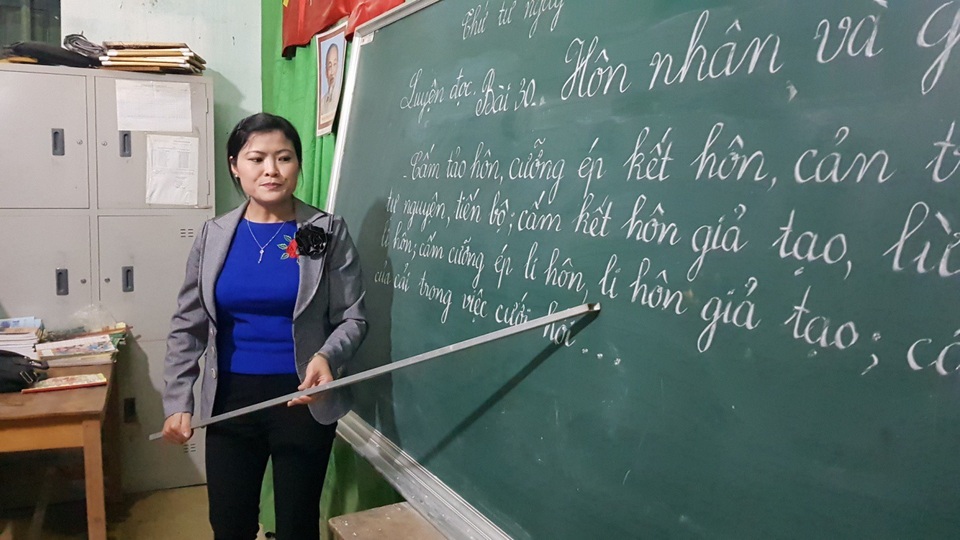 Thứ tư ngày
Luyện đọc. Bài 30. Hôn nhân và g
Cấm tảo hôn, cưỡng ép kết hôn, cản t
tự nguyện, tiến bộ; cấm kết hôn giả tạo, lừ
li hôn; cấm cưỡng ép li hôn, li hôn giả tạo; cấ
của cải trong việc cưới hỏi ...